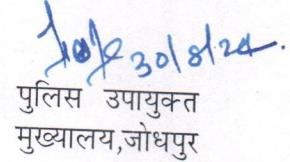 30/8/24
पुलिस उपायुक्त
मुख्यालय,जोधपुर